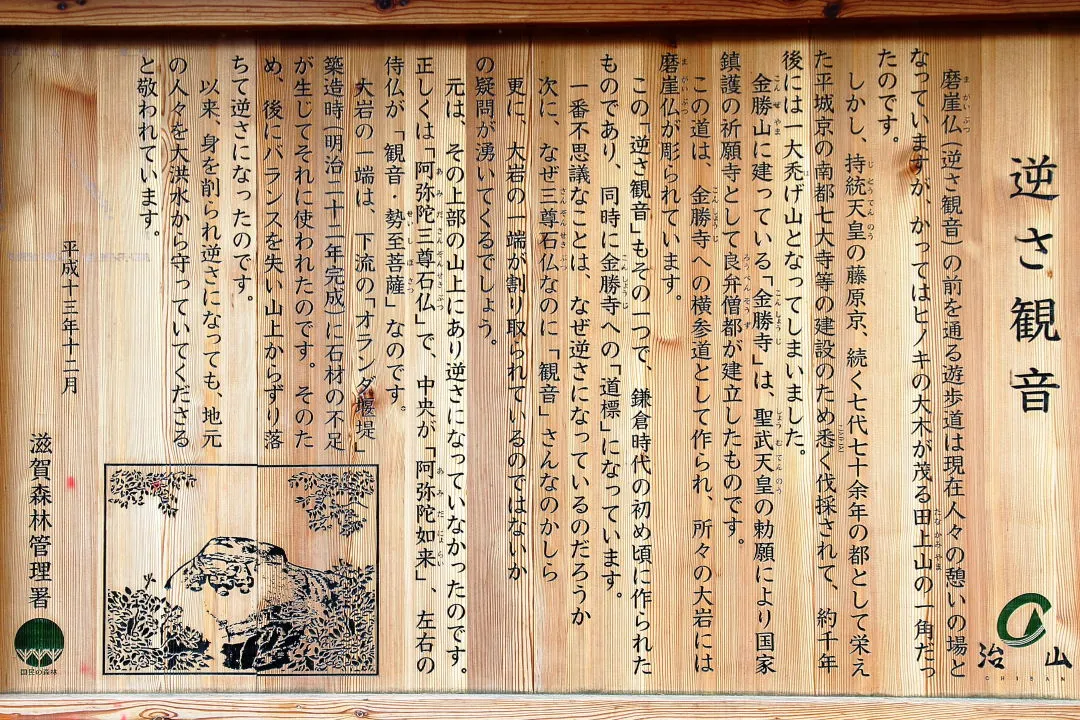 逆さ観音
治山
CHISAN
磨崖仏(逆さ観音)の前を通る遊歩道は現在人々の憩いの場と
なっていますが、かつてはヒノキの大木が茂る田上山の一角だっ
たのです。
しかし、持統天皇の藤原京、続く七代七十余年の都として栄え
た平城京の南都七大寺等の建設のため悉く伐採されて、約千年
後には一大禿げ山となってしまいました。
金勝山に建っている「金勝寺」は、聖武天皇の勅願により国家
鎮護の祈願寺として良弁僧都が建立したものです。
この道は、金勝寺への横参道として作られ、所々の大岩には
磨崖仏が彫られています。
この「逆さ観音」もその一つで、鎌倉時代の初め頃に作られた
ものであり、同時に金勝寺への「道標」になっています。
一番不思議なことは、なぜ逆さになっているのだろうか
次に、なぜ三尊石仏なのに「観音」さんなのかしら
更に、大岩の一端が割り取られているのではないか
の疑問が湧いてくるでしょう。
元は、その上部の山上にあり逆さになっていなかったのです。
正しくは「阿弥陀三尊石仏」で、中央が「阿弥陀如来」、左右の
侍仏が「観音・勢至菩薩」なのです。
大岩の一端は、下流の「オランダ堰堤」
築造時(明治二十二年完成)に石材の不足
が生じてそれに使われたのです。そのた
め、後にバランスを失い山上からずり落
ちて逆さになったのです。
以来、身を削られ逆さになっても、地元
の人々を大洪水から守っていてくださる
と敬われています。
平成十三年十二月
滋賀森林管理署
国民の森林